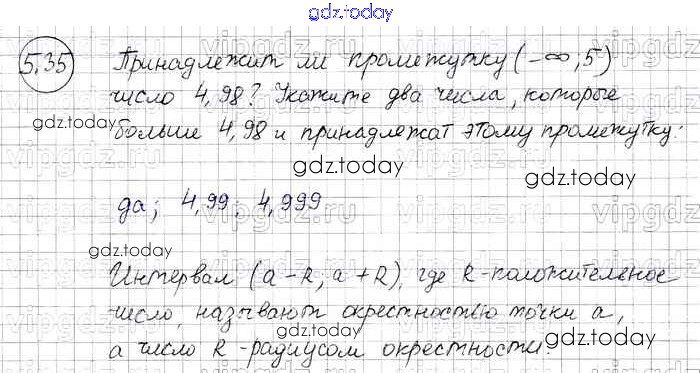 gdz.today
5.35 Принадлежит ли промежутку (-∞, 5)
число 4,98? Укажите два числа, которые
gdz.today
больше 4,98 и принадлежат этому промежутку:
gdz.today
gdz.today
да; 4,99; 4,999
gdz.today
Интервал (a-R, a+R), где R-положительное
число, называют окрестностью точки a,
gdz.today
gdz.today
а число R-радиусом окрестности.
vipgdz.ru